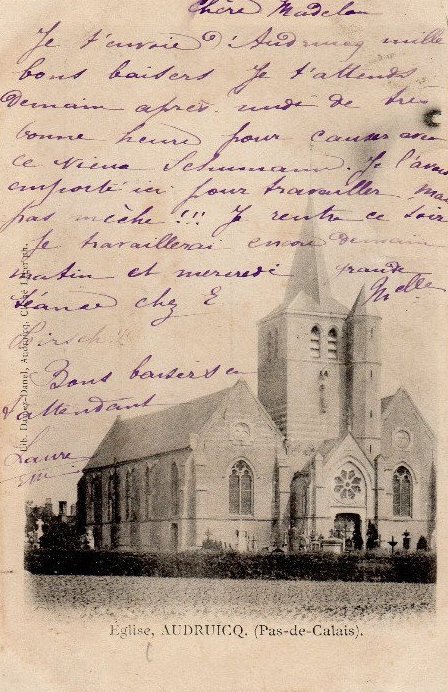 Chère Madelon
Je t'envoie d'Audruicq mille
bons baisers Je t'attends
Demain après-midi de très
bonne heure pour causer avec
ce vieux Schumann. Je l'avais
emporté ici pour travailler, mais
pas mèche !!! Je rentre ce soir
Je travaillerai encore demain
matin et mercredi grande
séance chez E
Hirsch !!
Bons baisers en
t'attendant
Laure
Lib. Danel, Audruicq.
Eglise, AUDRUICQ. (Pas-de-Calais).